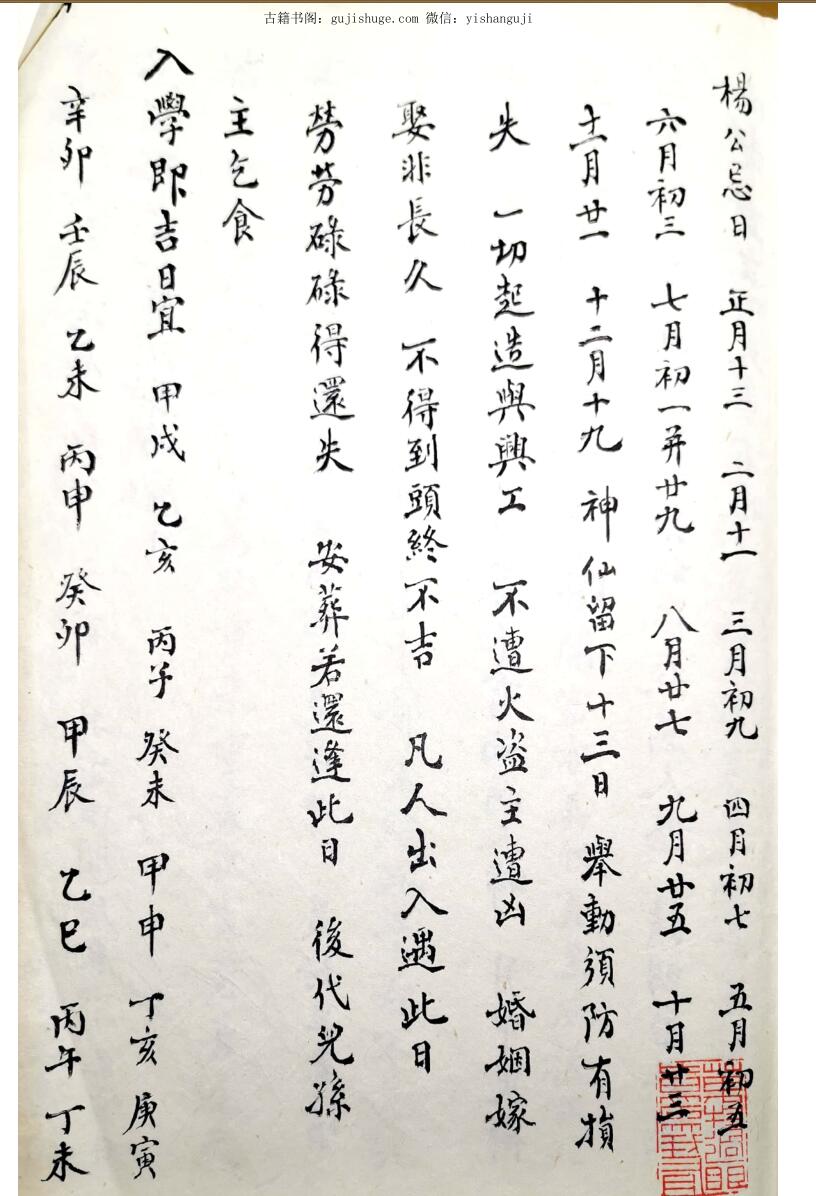 古籍书阁：gujishuge.com 微信：yishanguji
楊公忌日 正月十三 二月十一 三月初九 四月初七 五月初五
六月初三 七月初一并廿九 八月廿七 九月廿五 十月廿三
十一月廿一 十二月十九 神仙留下十三日 舉動須防有損
失 一切起造與興工 不遭火盗主遭凶 婚姻嫁
娶非長久 不得到頭終不吉 凡人出入遇此日
勞勞碌碌得還失 安葬若還逢此日 後代兒孫
主乞食
入學即吉日宜 甲戌 乙亥 丙子 癸未 甲申 丁亥 庚寅
辛卯 壬辰 乙未 丙申 癸卯 甲辰 乙巳 丙午 丁未